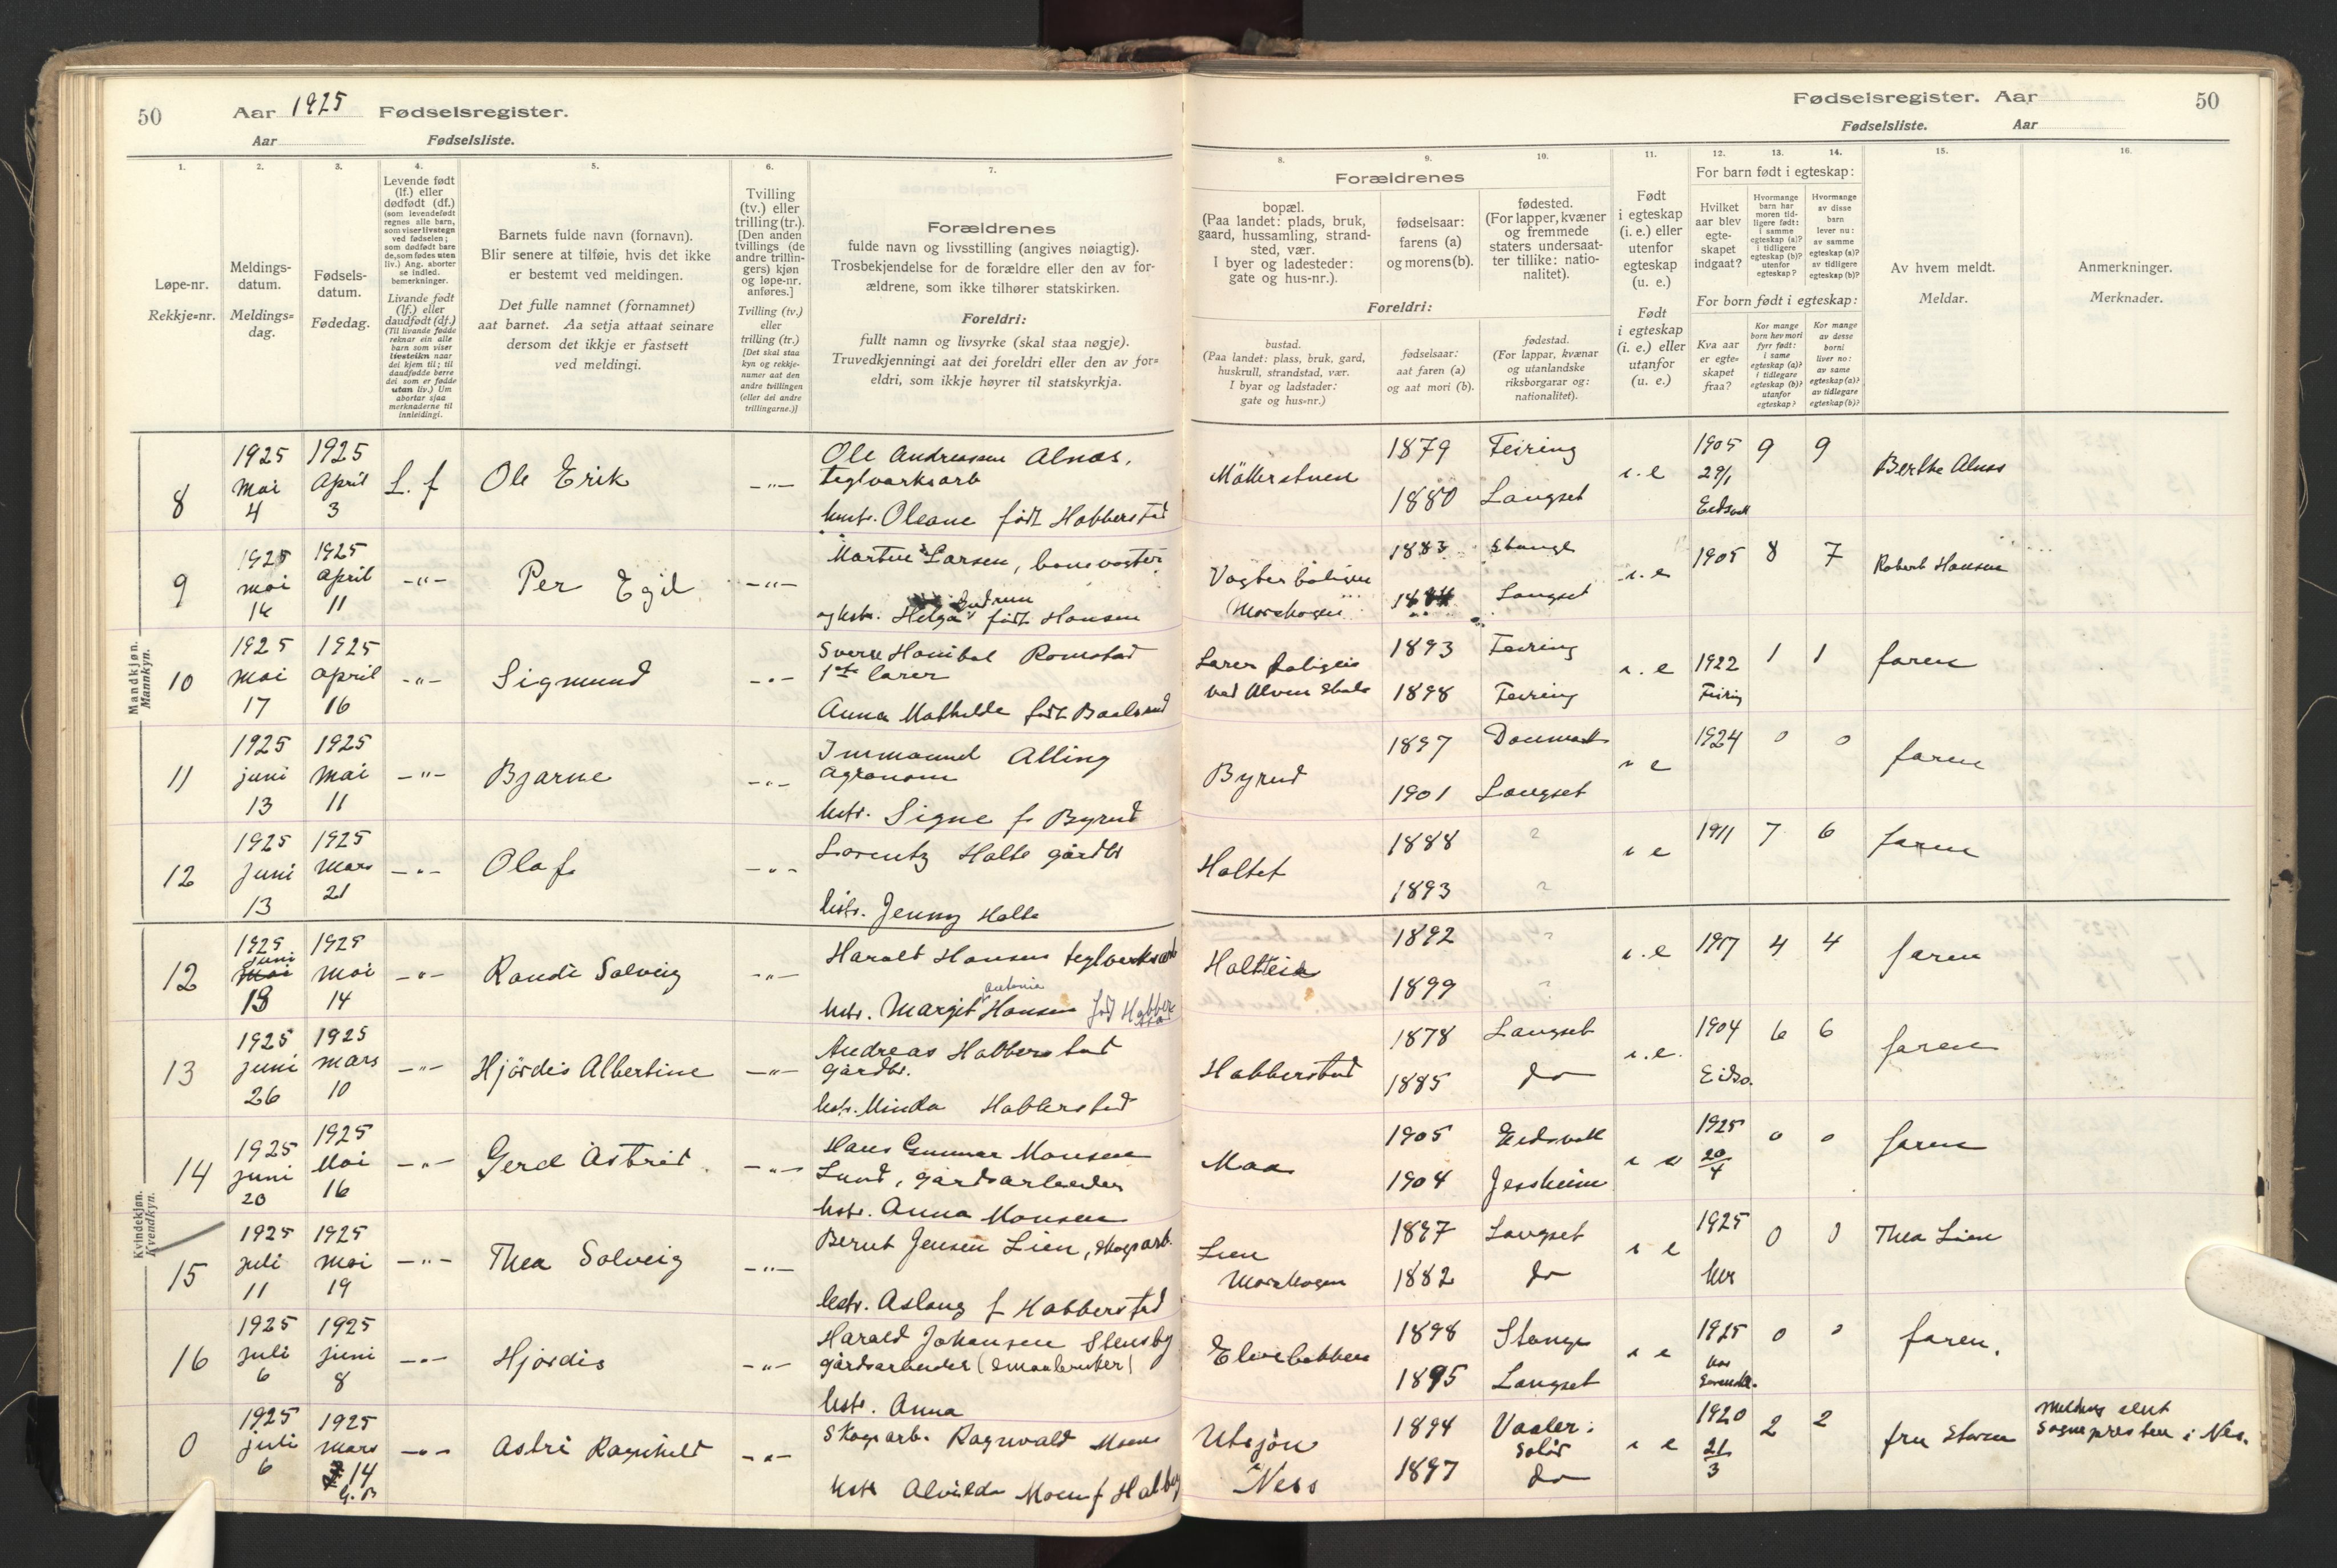 50
Aar 1925 Fødselsregister.
Aar Fødselsliste.
Fødselsregister. Aar
50
Fødselsliste. Aar
1.
Løpe-nr.
Rekkje=nr.
2.
Meldings-
datum.
Meldings=
dag.
3.
Fødsels-
datum.
Fødedag.
4.
Levende født
(lf.) eller
dødfødt (df.)
(som levendefødt
regnes alle barn,
som viser livstegn
ved fødselen;
som dødfødt bare
de, som fødes uten
liv.) Ang. aborter
se indled.
bemerkninger.
Livande født
(lf.) eller
daudfødt (df.)
(Til livande fødde
reknar ein alle
barn som viser
livsteikn naar
dei kjem til; til
daudfødde berre
dei som er fødde
utan liv.) Um
abortar sjaa
merknaderne til
innleidingi.
5.
Barnets fulde navn (fornavn).
Blir senere at tilføie, hvis det ikke
er bestemt ved meldingen.
Det fulle namnet (fornamnet)
aat barnet. Aa setja attaat seinare
dersom det ikkje er fastsett
ved meldingi.
6.
Tvilling
(tv.) eller
trilling (tr.).
[Den anden
tvillings (de
andre trillin-
gers) kjøn
og løpe-nr.
anføres.]
Tvilling (tv.)
eller
trilling (tr.)
[Det skal staa
kyn og rekkje-
numer aat den
andre tvillingen
(eller dei andre
trillingarne.)]
7.
Forældrenes
fulde navn og livsstilling (angives nøiagtig).
Trosbekjendelse for de forældre eller den av for-
ældrene, som ikke tilhører statskirken.
Foreldri:
fullt namn og livsyrke (skal staa nøgje).
Truvedkjenningi aat dei foreldri eller den av for=
eldri, som ikkje høyrer til statskyrkja.
Forældrenes
8.
bopæl.
(Paa landet: plads, bruk,
gaard, hussamling, strand-
sted, vær.
I byer og ladesteder:
gate og hus-nr.).
Foreldri:
bustad.
(Paa landet: plass, bruk, gard,
huskrull, strandstad, vær.
I byar og ladstader:
gate og hus=nr.)
9.
fødselsaar:
farens (a)
og morens (b).
fødselsaar:
aat faren (a)
og aat mori (b).
10.
fødested.
(For lapper, kvæner
og fremmede
staters undersaat-
ter tillike: natio-
nalitet).
fødestad.
(For lappar, kvænar
og utanlandske
riksborgarar og:
nationalitet).
11.
Født
i egteskap
(i. e.) eller
utenfor
egteskap
(u. e.)
Født
i egteskap
(i. e.) eller
utanfor
(u. e.)
For barn født i egteskap:
12.
Hvilket
aar blev
egte-
skapet
indgaat?
For born født i egteskap:
Kva aar
er egte=
skapet
fraa?
13.
Hvormange
barn har
moren tid-
ligere født:
i samme
egteskap (a)?
i tidligere
egteskap (b)?
utenfor
egteskap?
Kor mange
born hev mori
fyrr født:
i same
egteskap (a)?
i tidlegare
egteskap (b)?
utanfor
egteskap?
14.
Hvormange
av disse
barn
lever nu:
av samme
egteskap (a)?
av tidligere
egteskap (b)?
Kor mange
av desse
borni
liver no:
av same
egteskap (a)?
av tidlegare
egteskap (b)?
15.
Av hvem meldt.
Meldar.
16.
Anmerkninger.
Merknader.
Mandkjøn.
Mannkyn.
8 1925 Mai 4 1925 April 3 L. f Ole Erik -"- Ole Andreassen Alnæs,
teglverksarb
hustr. Oleane født Habberstad
Möllerstuen 1879 Feiring 1880 Langset i. e 1905 29/1 Eidsvoll 9 9 Berthe Alnæs
9 1925 mai 14 1925 April 11 -"- Per Egil -"- Martin Larsen, banevogter
og hstr. Helga Gudrun født Hansen
Vogterboligen
Morskogen 1883 Stange Langset i. e 1905 8 7 Robert Hansen
10 1925 mai 17 1925 april 16 -"- Sigmund -"- Sverre Hanibal Romstad
1ste lærer
Anna Mathilde født
Lærerboligen
ved Alven Skole 1893 Feiring 1898 Feiring i. e 1922 Feiring 1 1 faren
11 1925 juni 13 1925 mai 11 -"- Bjarne -"- Immanuel Alling
Agronom
hstr. Signe f. Byrud
Byrud 1897 Danmark 1901 Langset i e 1924 0 0 faren
12 1925 juni 13 1925 Mars 21 -"- Olaf -"- Lorentz Holte gårdbr
hstr. Jenny Holte
Holtet 1888 ? 1893 ? i e 1911 7 6 faren
Kvindekjøn.
Kvendkyn.
12 1925 Juni 13 1925 mai 14 -"- Randi Solveig -"- Haralt Hansen teglverksarb
hstr. Margit Antonie Hansen født Habberstad
1892 ? 1899 ? i. e 1917 4 4 faren
13 1925 juni 26 1925 mars 10 -"- Hjördis Albertine -"- Andreas Habberstad
gårdbr.
hstr. Minda Habberstad
Habberstad 1878 Langset 1885 do i. e. 1904 Eidsv. 6 6 faren
14 1925 juni 20 1925 Mai 16 -"- Gerd Astrid -"- Hans Gunnar Monsen
Lund, gårdsarbeider
hstr. Anna Monsen
Maa 1905 Eidsvoll 1904 Jessheim i e 1925 20/4 0 0 faren
15 1925 juli 11 1925 mai 19 -"- Thea Solveig -"- Bernt Jensen Lien, skogsarb.
hstr. Aslaug f Habberstad
Lien
Morskogen 1897 Langset 1882 do i e 1925 her 0 0 Thea Lien
16 1925 juli 6 1925 juni 8 -"- Hjördis -"- Harald Johansen Stensby
gårdsarbeider (småbruker)
hstr. Anna
Elvebakken 1898 Stange 1895 Langset i e 1925 0 0 faren.
0 1925 juli 6 1925 mars 14 -"- Astri Ragnhild -"- Skogsarb. Ragnvald Moen
hstr Alvilda Moen f
Utsjön
Nes 1894 Vaaler i
Solör 1897 do i e 1920 21/3 2 2 fru Steen melding sendt
Sognepresten i Nes.